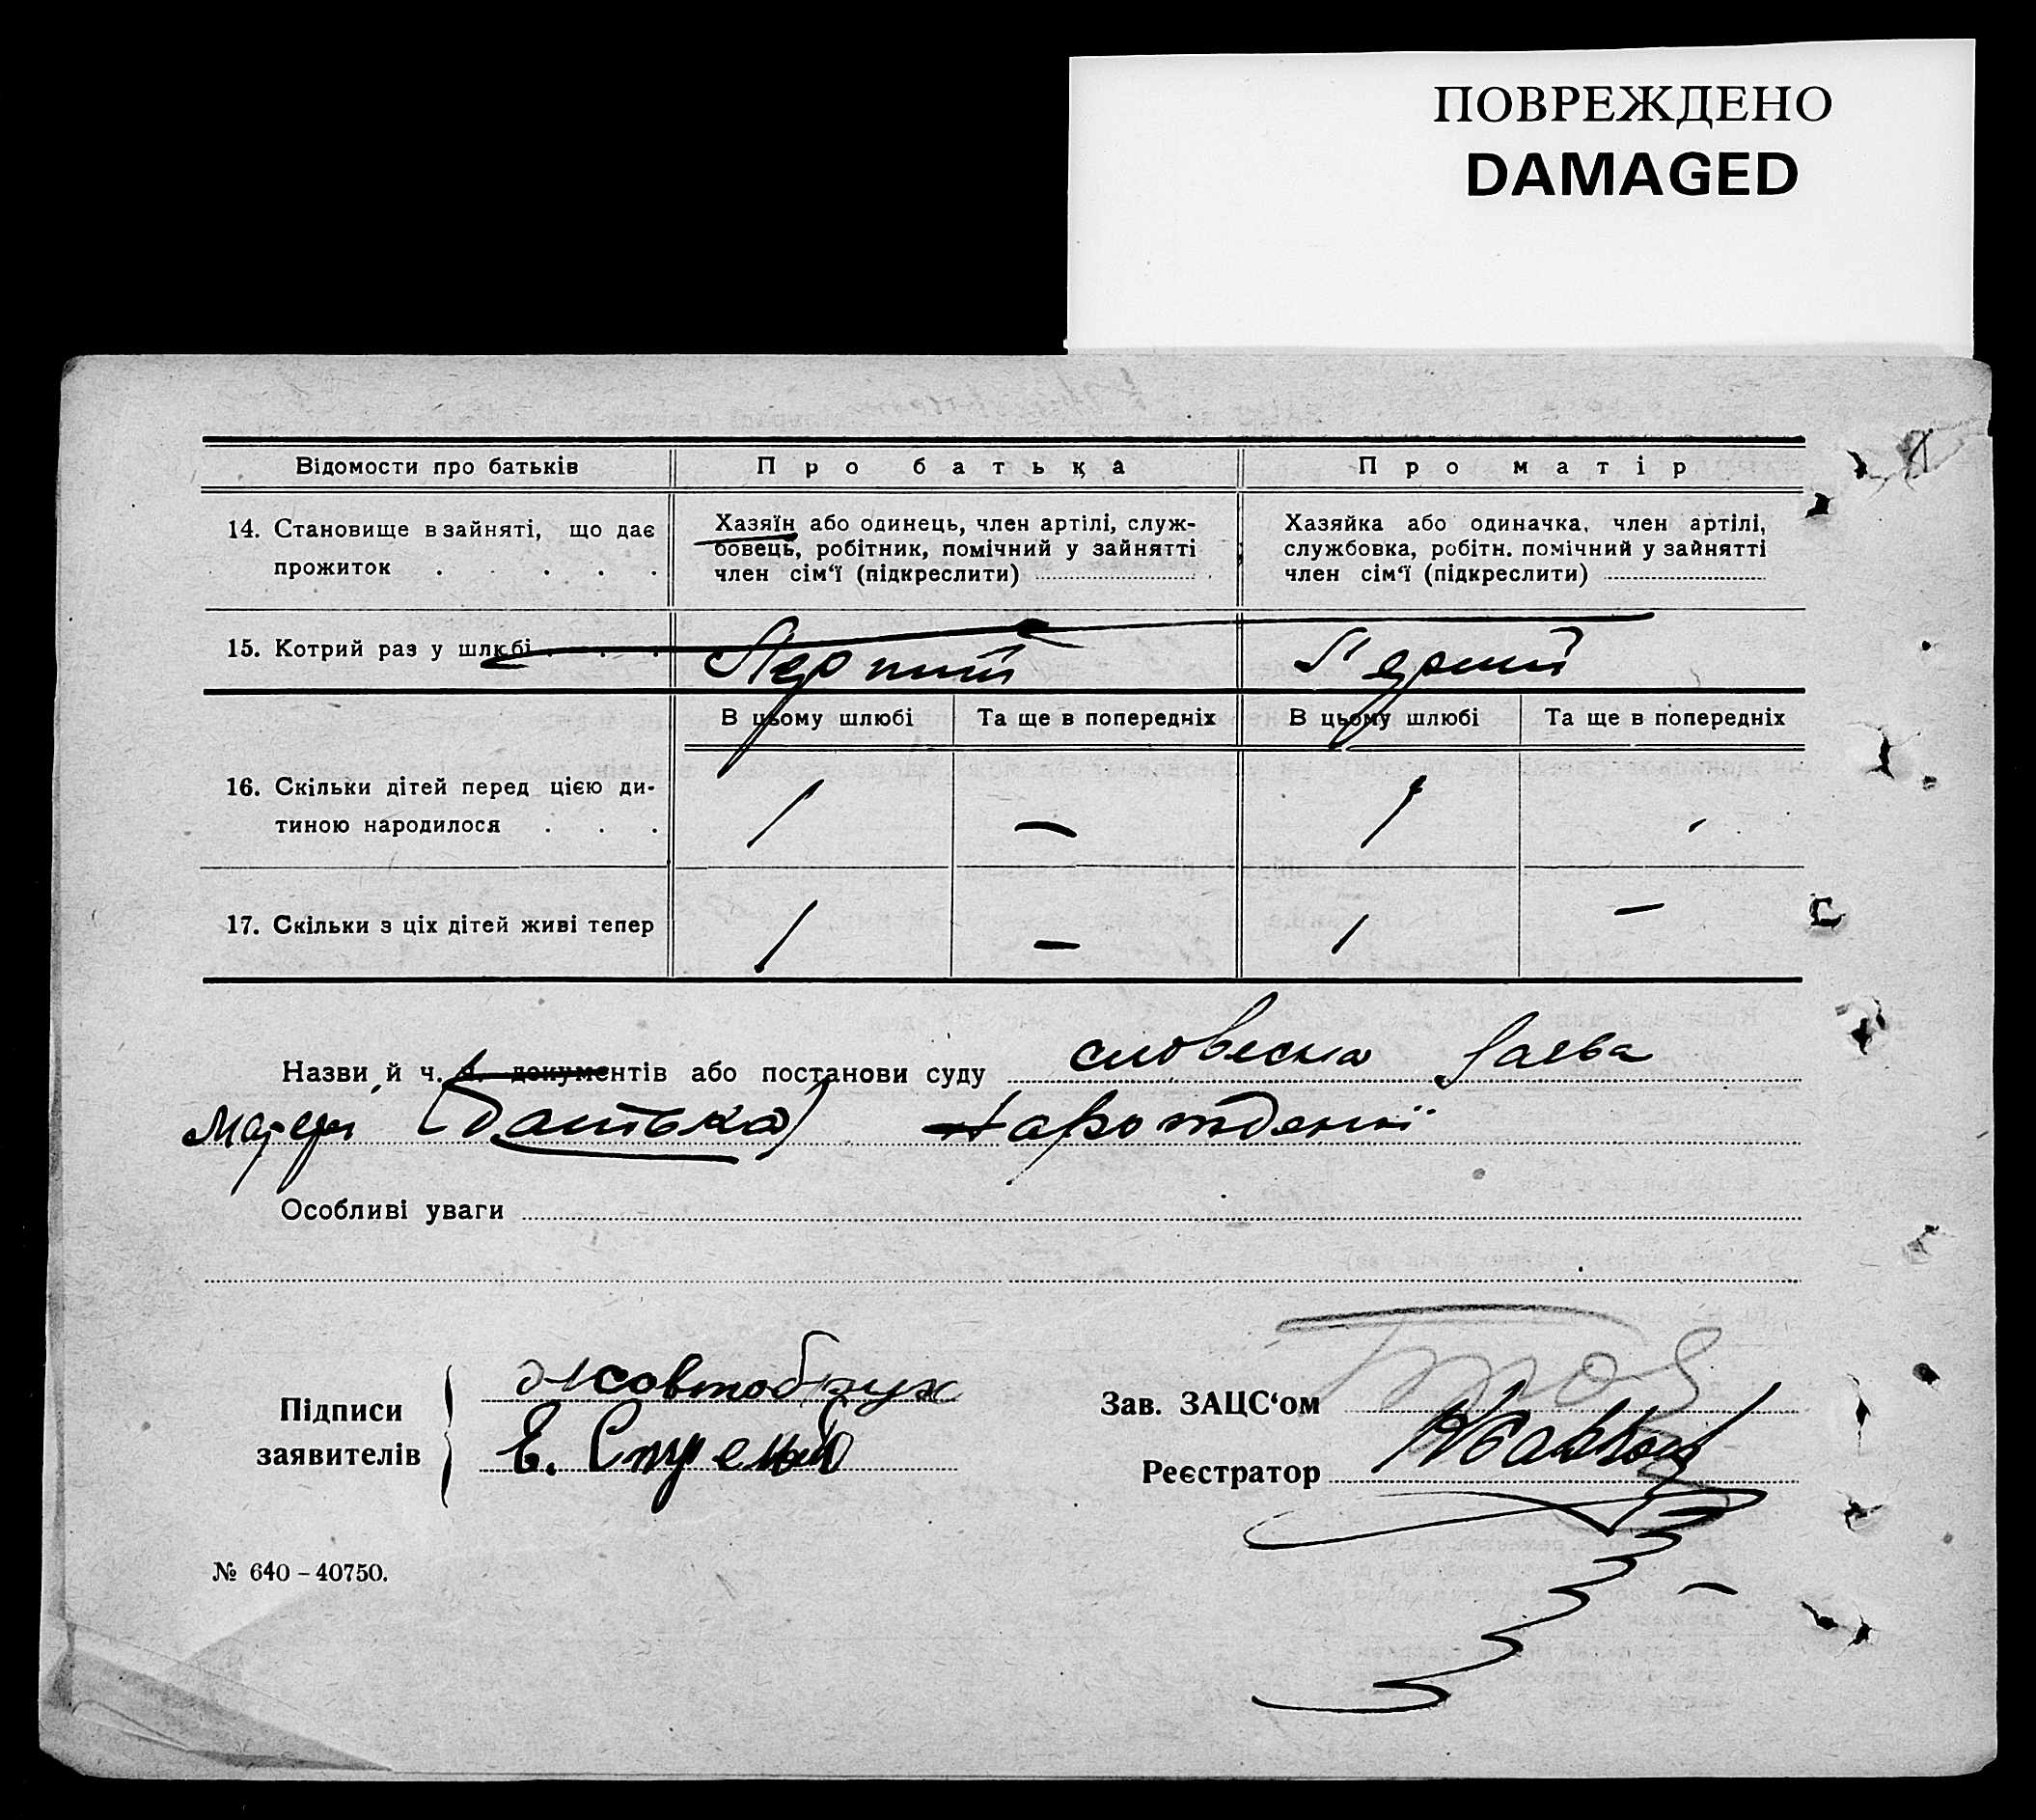 ПОВРЕЖДЕНО
DAMAGED
Відомости про батьків
Про батька
Про матір
14. Становище в зайняті, що дає
прожиток . . . . .
Хазяїн або одинець, член артілі, служ-
бовець, робітник, помічний у зайнятті
член сім‘ї (підкреслити)
Хазяйка або одиначка, член артілі,
службовка, робітн. помічний у зайнятті
член сім‘ї (підкреслити)
15. Котрий раз у шлюбі . . .
Перший
Перший
В цьому шлюбі
Та ще в попередніх
В цьому шлюбі
Та ще в попередніх
16. Скільки дітей перед цією ди-
тиною народилося . . .
1 — 1
17. Скільки з ціх дітей живі тепер
1 — 1 —
Назви й ч. ч. документів або постанови суду словесна заява
матери (батька) нарождении
Особливі уваги
Підписи
заявителів
Жовтобрух
Е.
Зав. ЗАЦС‘ом
Реєстратор
№ 640 – 40750.